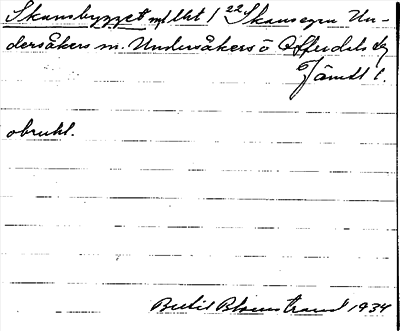 Skansbygget mf lht 1 22 Skansegrn Un-
dersåkers sn. Undersåkers o Offerdals tg
Jämtl l.
obrukl.
Bertil Blomstrand 1934